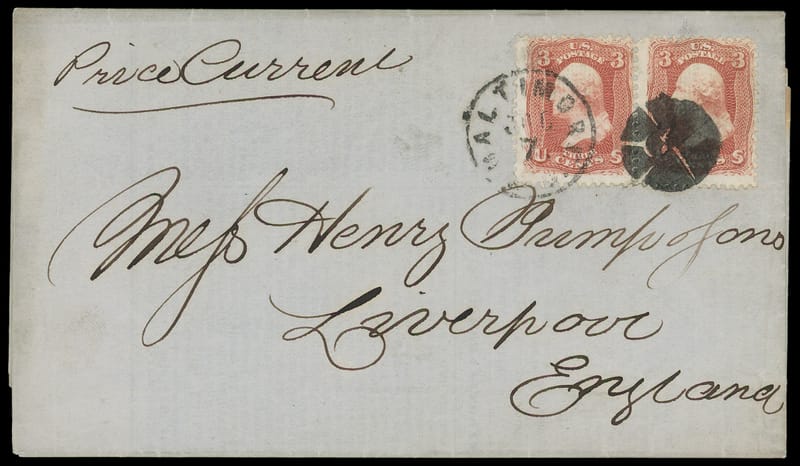 Price Current
3 U.S. POSTAGE 3
U THREE CENTS S
3 U.S. POSTAGE 3
S
BALTIMORE
7
Mess Henry Pump & Sons
Liverpool
England